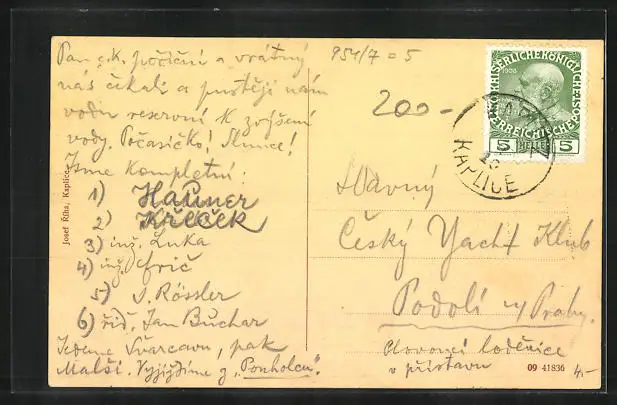 Pan c.k. počiční a vrátný
nás čekali a pustěji nám
vodu reservní k zvýšení
vody. Počasíčko! Slunce!
Jsme kompletní:
1) Hauner
2) Křeček
3) inž. Luka
4) inž. Frič
5) J. Rössler
6) řid. Jan Buchar
Jedeme Švarcavu, pak
Malší. Vyjíždíme z „Ponholcu".
Josef Říha, Kaplice
954/7 = 5
200-
KAISERLICHE KÖNIGLICHE
ÖSTERREICHISCHE POST
1908
5 HELLER 5
KAPLICE
Slavný
Český Yacht Klub
Podolí u Prahy.
plovoucí loděnice
v přístavu
09 41836
4.-